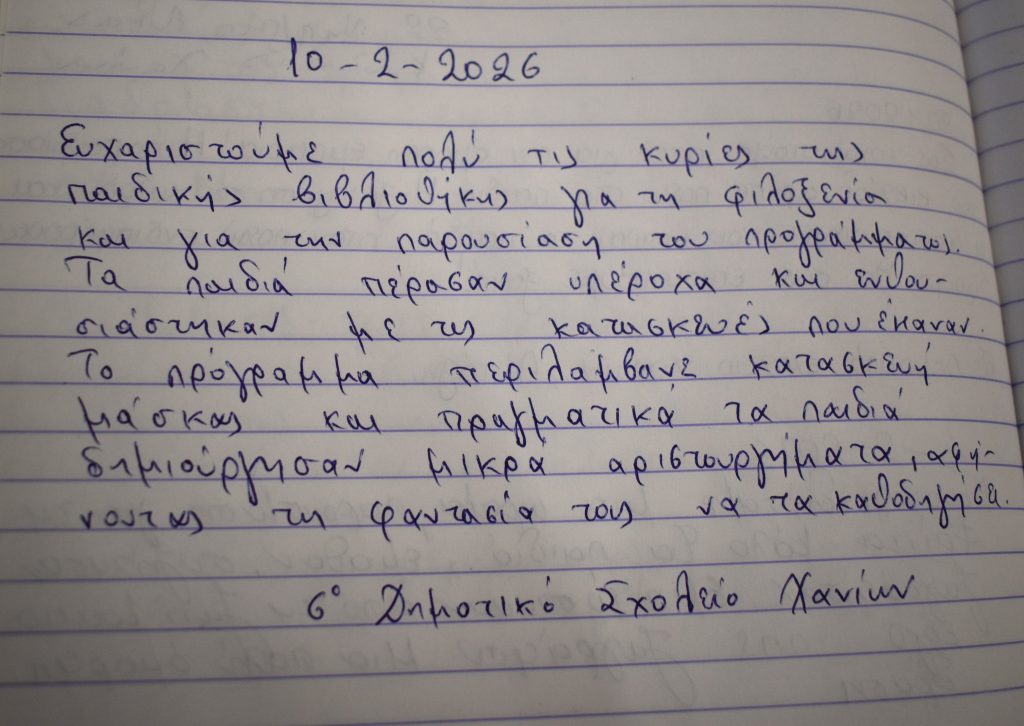 10-2-2026
Ευχαριστούμε πολύ τις κυρίες της
παιδικής βιβλιοθήκης για τη φιλοξενία
και για την παρουσίαση του προγράμματος.
Τα παιδιά πέρασαν υπέροχα και ενθου-
σιάστηκαν με τις κατασκευές που έκαναν.
Το πρόγραμμα περιλάμβανε κατασκευή
μάσκας και πραγματικά τα παιδιά
δημιούργησαν μικρά αριστουργήματα, αφή-
νοντας τη φαντασία τους να τα καθοδηγήσει.
6° Δημοτικό Σχολείο Χανίων